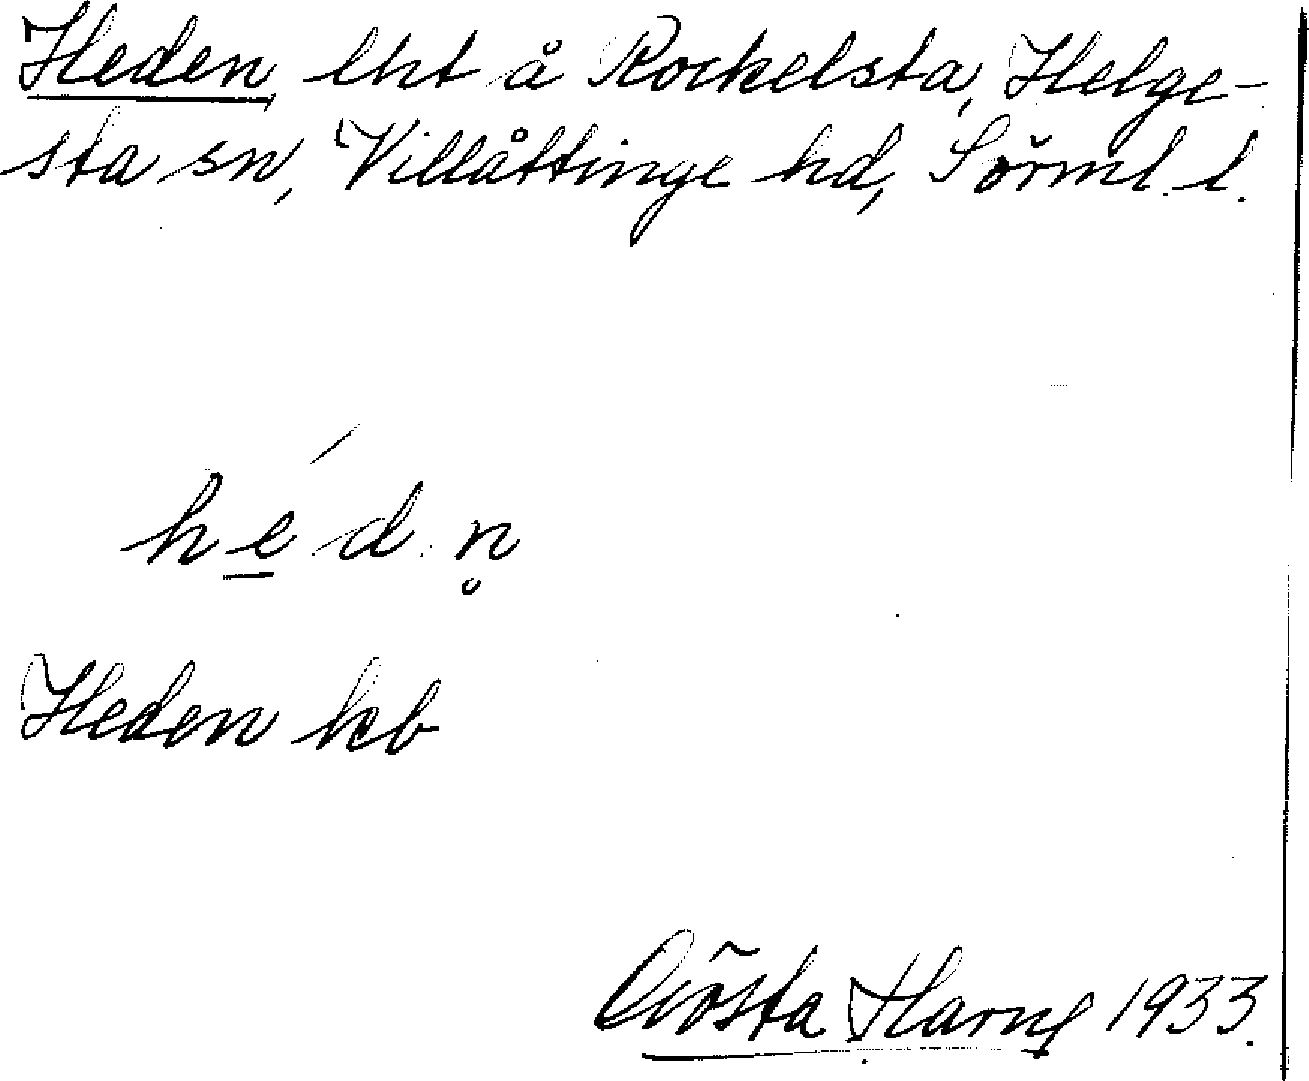 Heden, lht å Rockelsta, Helge-
sta sn, Villåttinge hd, Sörml. l.
hé̱dn̥
Heden kb
Gösta Harng 1933.